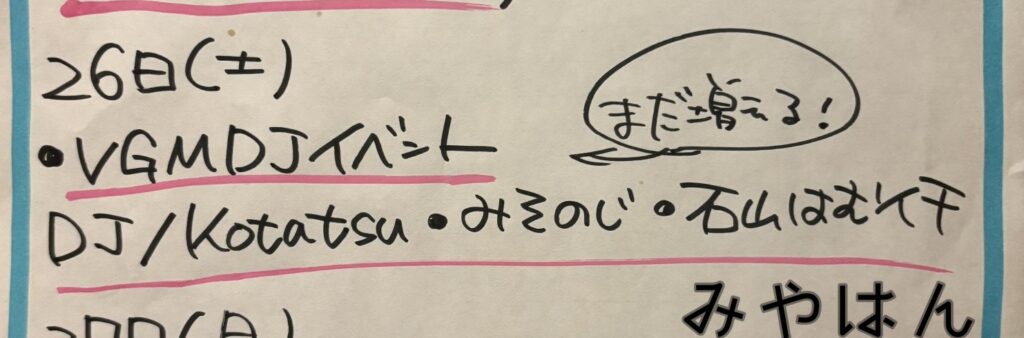 26日(土)
まだ増える!
・VGMDJイベント
DJ/Kotatsu・みそのじ・石山はむイチ
みやはん
27日(日)